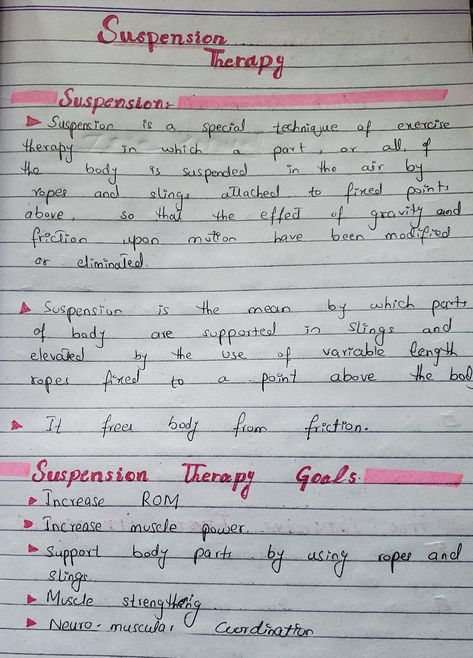 Suspension
Therapy
Suspension:-
Suspension is a special technique of exercise
therapy in which a part, or all, of
the body is suspended in the air by
ropes and slings attached to fixed points
above, so that the effect of gravity and
friction upon motion have been modified
or eliminated.
Suspension is the mean by which parts
of body are supported in slings and
elevated by the use of variable length
ropes fixed to a point above the body
It frees body from friction.
Suspension Therapy Goals.
Increase ROM
Increase muscle power.
Support body parts by using ropes and
slings
Muscle strengthenig
Neuro-muscular Coordination